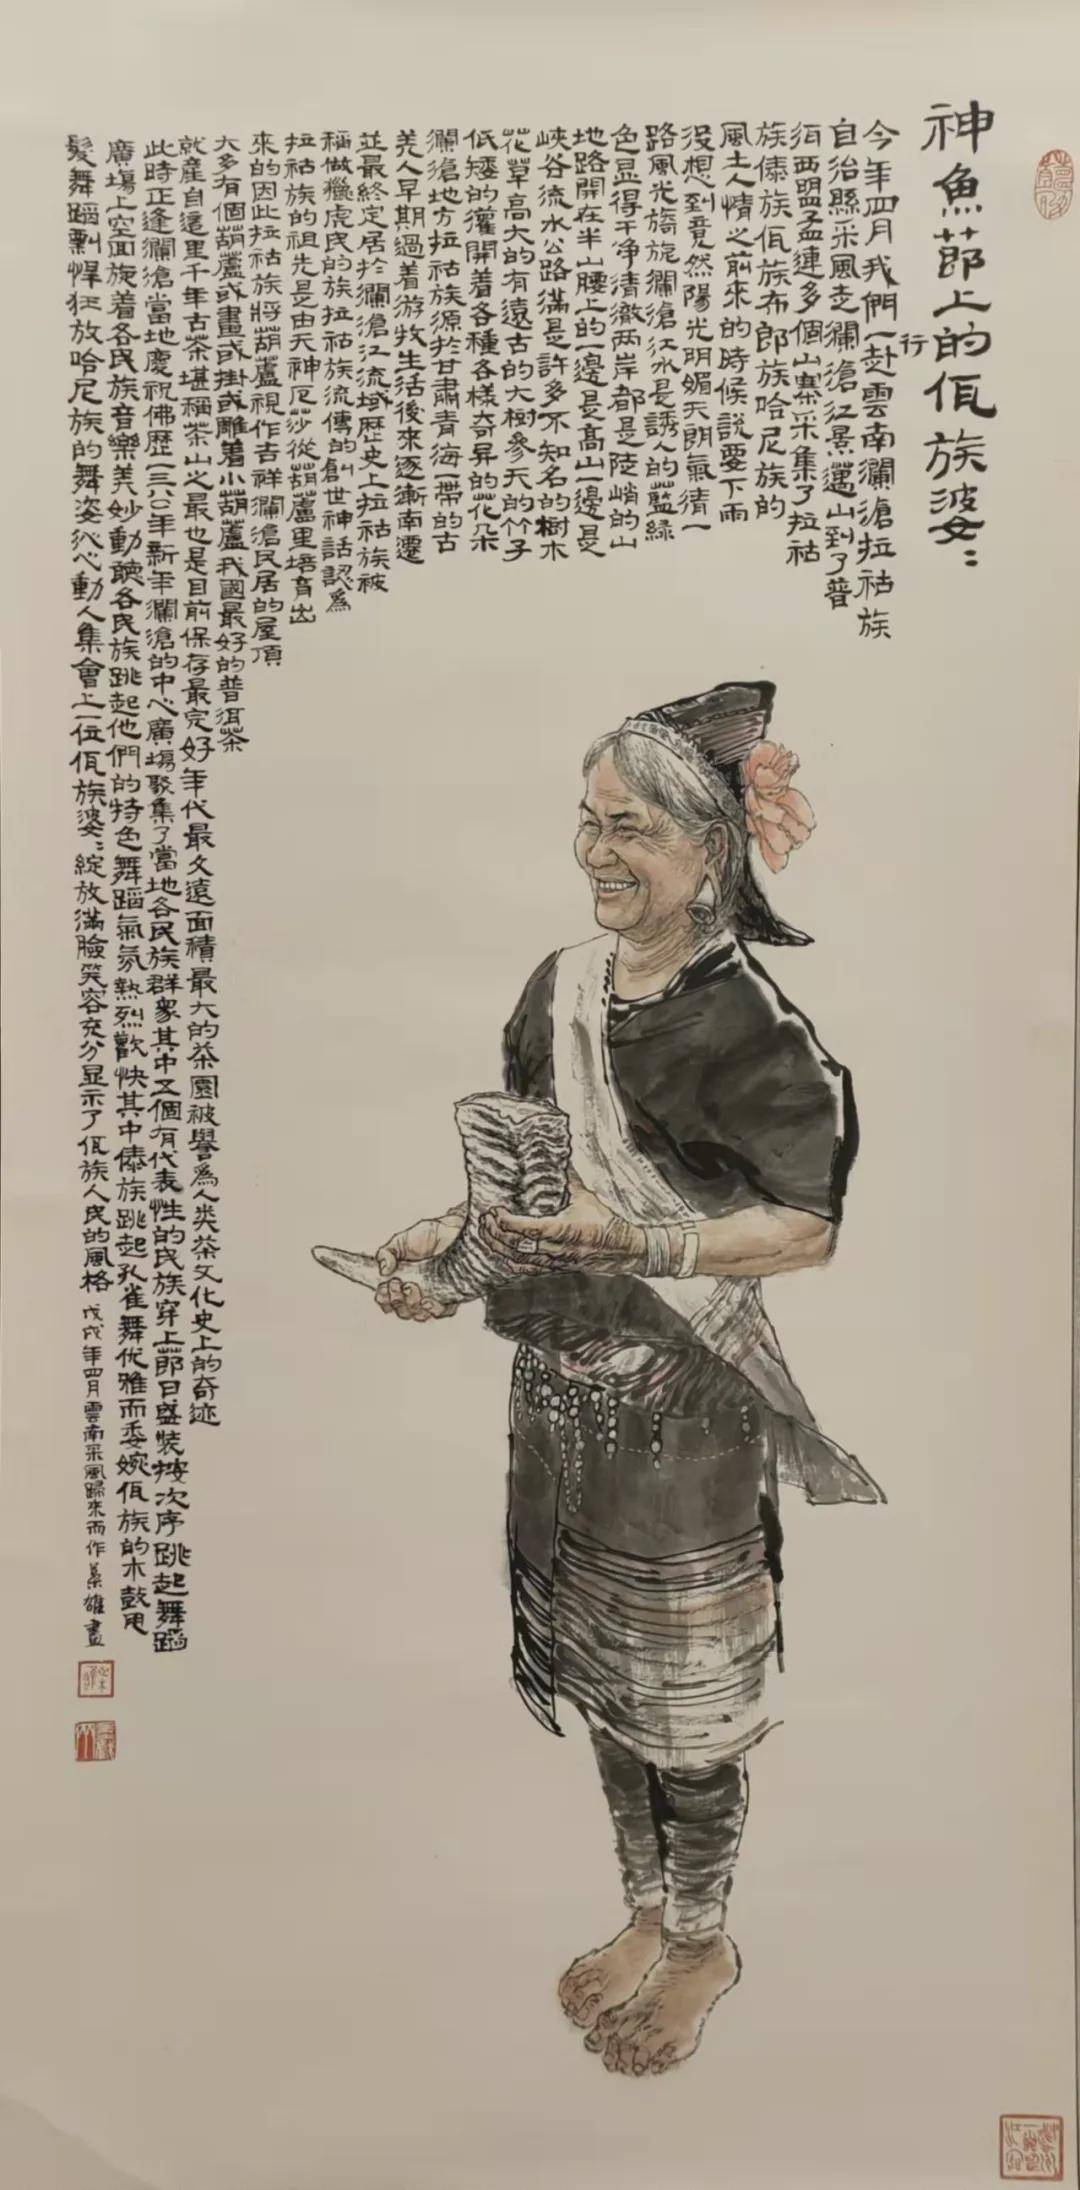 神魚莭上的佤族婆:
今年四月我們一行赴雲南瀾滄拉祜族
自治縣采風走瀾滄江景邁山到了普
洱西盟孟連多個山寨采集了拉祜
族傣族佤族布郎族哈尼族的
風土人情之前來的時候說要下雨
沒想到竟然陽光明媚天朗氣清一
路風光旖旎瀾滄江水是誘人的藍緑
色显得干净清澈两岸都是陡峭的山
地路開在半山腰上的一邊是高山一邊是
峡谷流水公路滿是許多不知名的樹木
花草高大的有遠古的大樹參天的竹子
低矮的灌開着各種各樣奇异的花朵
瀾滄地方拉祜族源於甘肅青海一帶的古
羌人早期過着游牧生活後來逐漸南遷
並最終定居於瀾滄江流域歷史上拉祜族被
稱做獵虎民的族拉祜族流傳的創世神話認爲
拉祜族的祖先是由天神厄莎從葫蘆里培育出
來的因此拉祜族將葫蘆視作吉祥瀾滄民居的屋頂
大多有個葫蘆或畫或掛或雕着小葫蘆我國最好的普洱茶
就產自這里千年古茶堪稱茶山之最也是目前保存最完好年代最久遠面積最大的茶園被譽爲人类茶文化史上的奇迹
此時正逢瀾滄當地慶祝佛歷一三八〇年新年瀾滄的中心廣場聚集了當地各民族群衆其中五個有代表性的民族穿上莭日盛裝按次序跳起舞蹈
廣場上空面旋着各民族音樂美妙動聽各民族跳起他們的特色舞蹈氣氛熱烈歡快其中傣族跳起孔雀舞优雅而委婉佤族的木鼓甩
髮舞蹈剽悍狂放哈尼族的舞姿沁心動人集會上一位佤族婆:綻放滿臉笑容充分显示了佤族人民的風格 戊戌年四月雲南采風歸來而作 雄畫